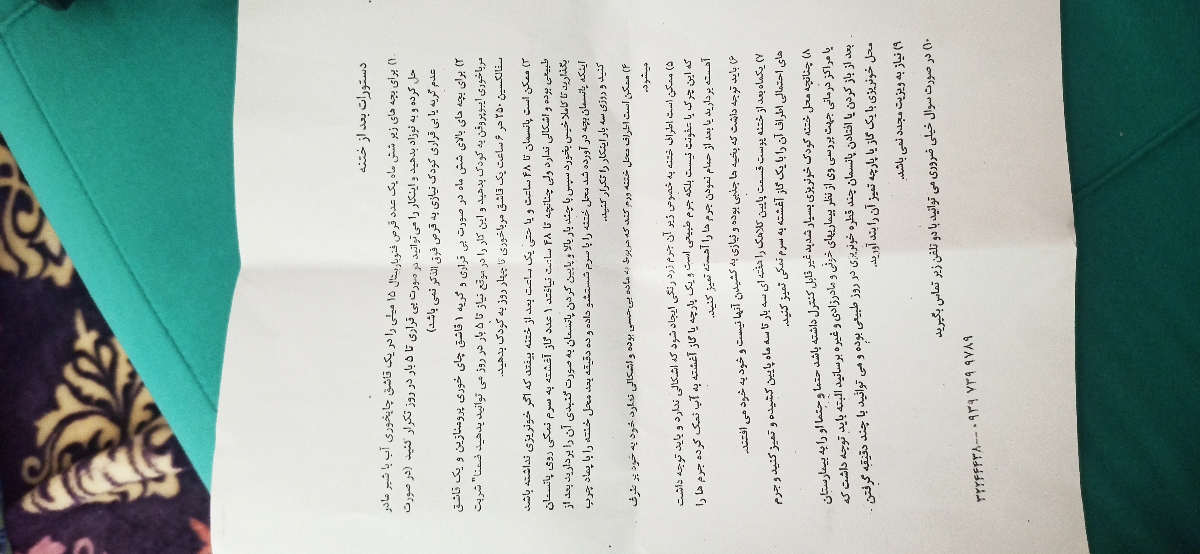 دستورات بعد از ختنه
۱) برای بچه های زیر شش ماه یک عدد قرص فنوباربیتال ۱۵ میلی را در یک قاشق چایخوری آب یا شیر مادر
حل کرده و به نوزاد بدهید و اینکار را می توانید در صورت بی قراری تا ۵ بار در روز تکرار کنید. (در صورت
عدم گریه یا بی قراری کودک نیازی به قرص فوق الذکر نمی باشد)
۲) برای بچه های بالای شش ماه در صورت بی قراری و گریه ۱ قاشق چای خوری پرومتازین و یک قاشق
مرباخوری ایبوپروفن به کودک بدهید و این کار را در موقع نیاز تا ۵ بار در روز می توانید بدهید. ضمنا" شربت
سفالکسین ۲۵۰ هر ۶ ساعت یک قاشق مرباخوری تا چهار روز به کودک بدهید.
۳) ممکن است پانسمان تا ۴۸ ساعت و یا حتی یک ساعت بعد از ختنه بیفتد که اگر خونریزی نداشته باشد
طبیعی بوده و اشکالی ندارد ولی چنانچه تا ۴۸ ساعت نیافتد ۱ عدد گاز آغشته به سرم نمکی روی پانسمان
بگذارید تا کاملا خیس بخورد سپس با چند بار بالا و پایین کردن پانسمان به صورت گنبدی آن را بردارید بعد از
اینکه پانسمان بچه در آورده شد محل ختنه را با سرم شستشو داده و ده دقیقه بعد محل ختنه را با پماد چرب
کنید و روزی سه بار اینکار را تکرار کنید.
۴) ممکن است اطراف محل ختنه ورم کند که مربوط به ماده بی حسی بوده و اشکالی ندارد خود به خود بر طرف
میشود.
۵) ممکن است اطراف ختنه به خصوص زیر آن جرم زرد رنگی ایجاد شود که اشکالی ندارد و باید توجه داشت
که این چرک یا عفونت نیست بلکه جرم طبیعی است و یک پارچه یا گاز آغشته به آب نمک کرده جرم ها را
آهسته بردارید یا بعد از حمام نمودن جرم ها را آهسته تمیز کنید.
۶) باید توجه داشت که بخیه ها جذبی بوده و نیازی به کشیدن آنها نیست و خود به خود می افتند.
۷) یکماه بعد از ختنه پوست قسمت پایین کلاهک را هفته ای سه بار تا سه ماه پایین کشیده و تمیز کنید و جرم
های احتمالی اطراف آن را با یک گاز آغشته به سرم نمکی تمیز کنید.
۸) چنانچه محل ختنه کودک خونریزی بسیار شدید غیر قابل کنترل داشته باشد حتما و حتما او را به بیمارستان
یا مراکز درمانی جهت بررسی وی از نظر بیماریهای خونی و مادرزادی و غیره برسانید. البته باید توجه داشت که
بعد از باز کردن یا افتادن پانسمان چند قطره خونریزی در روز طبیعی بوده و می توانید با چند دقیقه گرفتن
محل خونریزی با یک گاز یا پارچه تمیز آن را بند آورید.
۹) نیاز به ویزیت مجدد نمی باشد.
۱۰) در صورت سوال خیلی ضروری می توانید با دو تلفن زیر تماس بگیرید
۳۲۲۴۴۴۳۸--- ۰۹۳۹ ۷۳۹ ۹۷۸۹